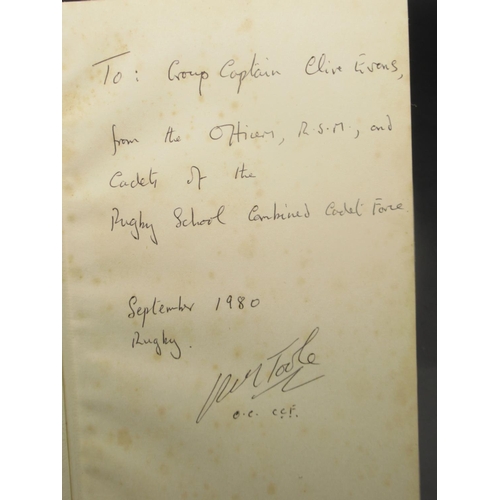 To: Group Captain Clive Evans,
from the Officers, R.S.M., and
Cadets of the
Rugby School Combined Cadet Force.
September 1980
Rugby.
O.C. C.C.F.